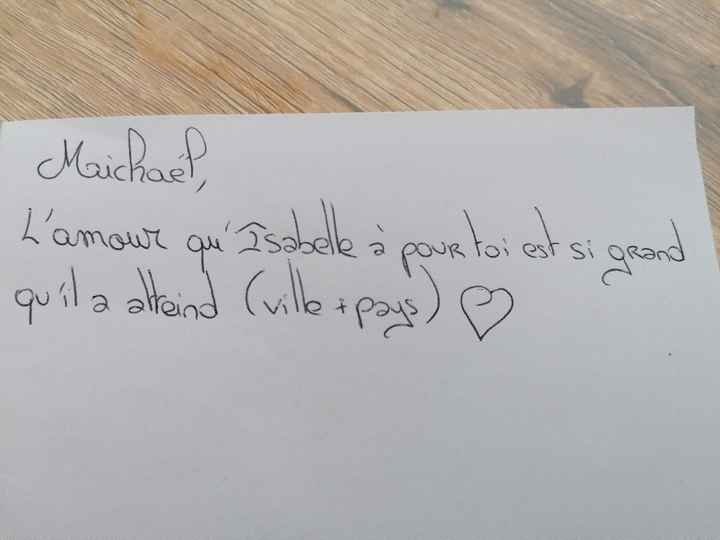 Maichaël,
L'amour qu'Isabelle à pour toi est si grand
qu'il a atteind (ville + pays) ♡